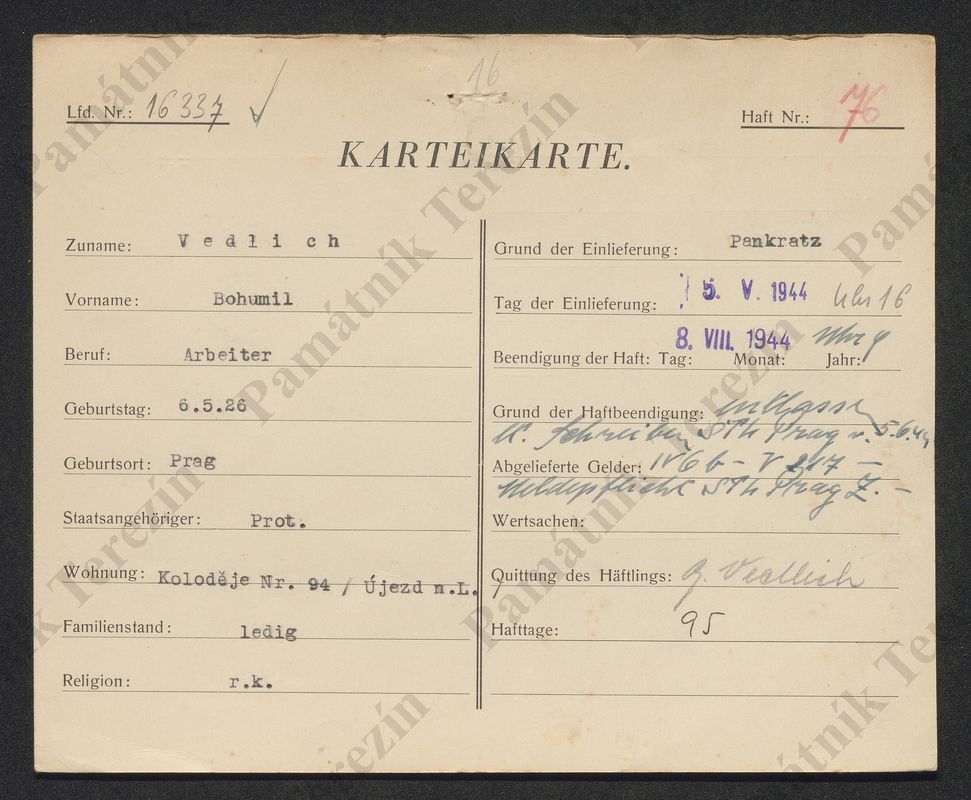 16
Lfd. Nr.: 16337
Haft Nr.: 76
KARTEIKARTE.
Zuname: Vedlich
Vorname: Bohumil
Beruf: Arbeiter
Geburtstag: 6.5.26
Geburtsort: Prag
Staatsangehöriger: Prot.
Wohnung: Koloděje Nr. 94 / Újezd n.L.
Familienstand: ledig
Religion: r.k.
Grund der Einlieferung: Pankratz
Tag der Einlieferung: 5. V. 1944 Uhr 16
8. VIII. 1944 Uhr 9
Beendigung der Haft: Tag: Monat: Jahr:
Grund der Haftbeendigung: entlassen
lt. Schreiben STL Prag v. 5.6.44
Abgelieferte Gelder: IV6b - V 217 -
Meldepflicht STL Prag Z. -
Wertsachen:
Quittung des Häftlings: Vedlich
Hafttage: 95
Památník Terezín